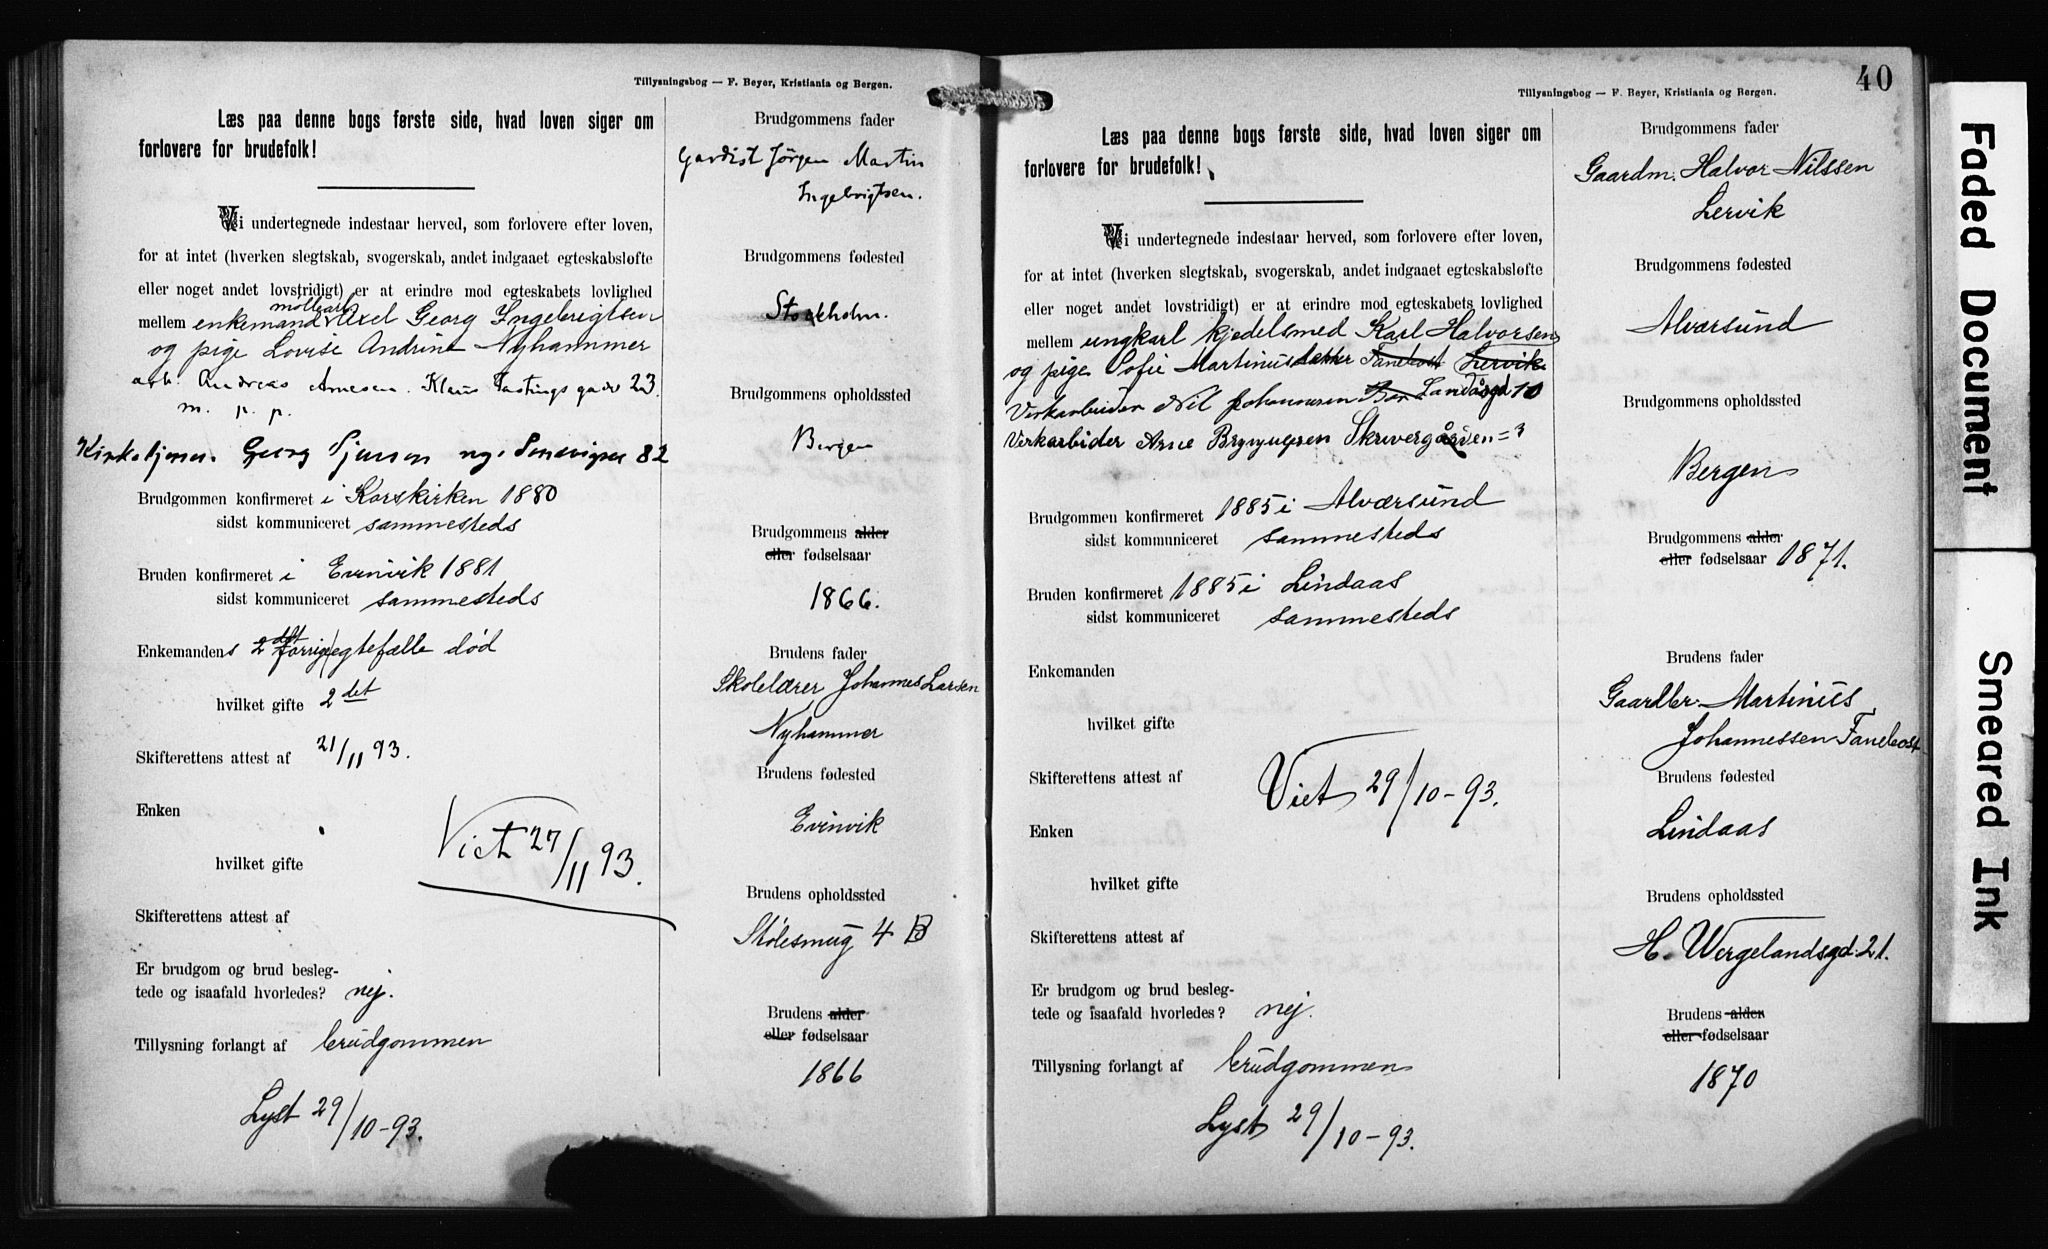 Tillysningsbog — F. Beyer, Kristiania og Bergen.
Læs paa denne bogs første side, hvad loven siger om
forlovere for brudefolk!
Vi undertegnede indestaar herved, som forlovere efter loven,
for at intet (hverken slegtskab, svogerskab, andet indgaaet egteskabsløfte
eller noget andet lovstridigt) er at erindre mod egteskabets lovlighed
møllearb.
mellem enkemand Axel Georg Ingebrigtsen
og pige Lovise Andrine Nyhammer
arb. Andreas Arnesen. Klaus gade 23
m. p. p.
Kirketjener Georg 82
Brudgommen konfirmeret i Korskirken 1880
sidst kommuniceret sammesteds
Bruden konfirmeret i Evinvik 1881
sidst kommuniceret sammesteds
Enkemandens 2 forrige egtefælle død
hvilket gifte 2det
Skifterettens attest af 21/11 93.
Enken
hvilket gifte
Viet 27/11 93.
Skifterettens attest af
Er brudgom og brud besleg-
tede og isaafald hvorledes? nej.
Tillysning forlangt af brudgommen
Lyst 29/10-93.
Brudgommens fader
Gardist Jörgen Martin
Ingebrigtsen.
Brudgommens fødested
Stockholm.
Brudgommens opholdssted
Bergen
Brudgommens alder
eller fødselsaar
1866.
Brudens fader
Skolelærer Johannes Larsen
Nyhammer
Brudens fødested
Evinvik
Brudens opholdssted
Stølesmug 4 B
Brudens alder
eller fødselsaar
1866
40
Tillysningsbog — F. Beyer, Kristiania og Bergen.
Læs paa denne bogs første side, hvad loven siger om
forlovere for brudefolk!
Vi undertegnede indestaar herved, som forlovere efter loven,
for at intet (hverken slegtskab, svogerskab, andet indgaaet egteskabsløfte
eller noget andet lovstridigt) er at erindre mod egteskabets lovlighed
mellem ungkarl kjedelsmed Karl Halvorsen
og pige Sofie Martinusdatter Fanebost Lervik
Verkarbeider Nil Johannesen Landåsgd 10
Verkarbider Arne Brynjulfsen Skrivergården 3
Brudgommen konfirmeret 1885 i Alværsund
sidst kommuniceret sammesteds
Bruden konfirmeret 1885 i Lindaas
sidst kommuniceret sammesteds
Enkemanden
hvilket gifte
Skifterettens attest af
Viet 29/10-93.
Enken
hvilket gifte
Skifterettens attest af
Er brudgom og brud besleg-
tede og isaafald hvorledes? nej.
Tillysning forlangt af brudgommen
Lyst 29/10-93.
Brudgommens fader
Gaardm. Halvor Nilssen
Lervik
Brudgommens fødested
Alværsund
Brudgommens opholdssted
Bergen
Brudgommens alder
eller fødselsaar 1871.
Brudens fader
Gaardbr. Martinus
Johannessen Fanebost
Brudens fødested
Lindaas
Brudens opholdssted
H. Wergelandsgd. 21.
Brudens alder
eller fødselsaar
1870
Faded Document
Smeared Ink